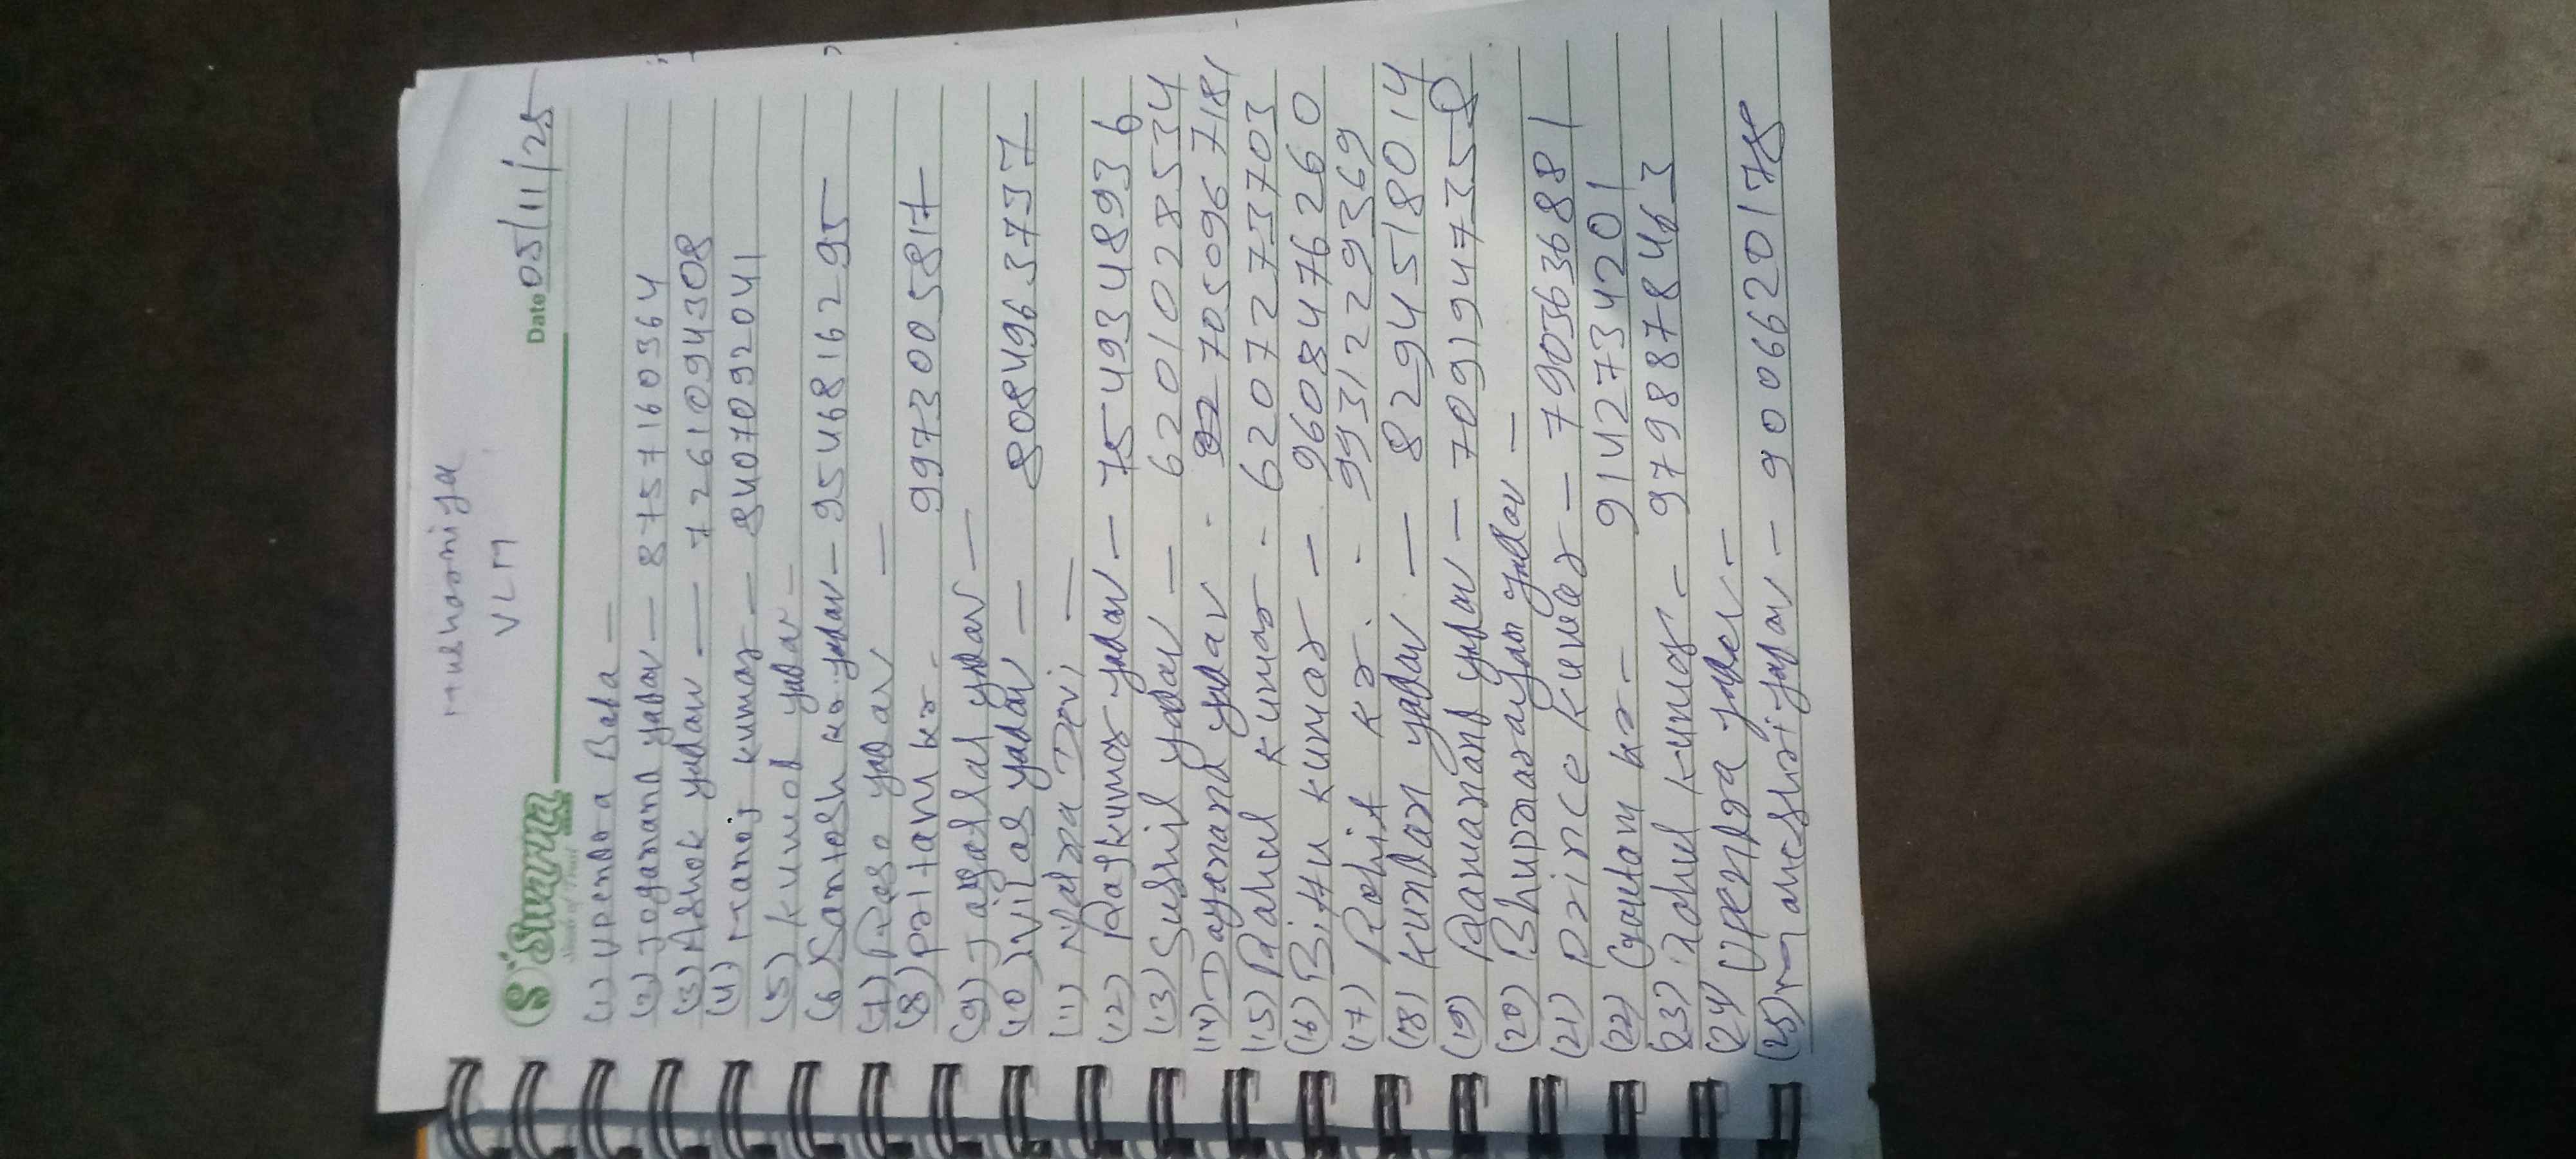 Mushaarniya
VLM
Suvarna
Date 05/11/25
(1) Upendra Baba —
(2) Joganand yadav — 8757160364
(3) Ashok yadav — 7261094308
(4) Manoj kumar — 8407092041
(5) Kumod yadav —
(6) Santosh kr. yadav — 9546816295
(7) yadav —
(8) Pritam kr. 9973005817
(9) Jagelal yadav —
(10) Vilas yadav — 8084963737
(11) Devi —
(12) Rajkumar yadav — 7549348936
(13) Sushil yadav — 6201028534
(14) Dayanand yadav - 7050967181
(15) Rahul Kumar - 6207273703
(16) Bittu kumar — 9608476260
(17) Rohit kr. - 9931229369
(18) Kundan yadav — 8294518014
(19) Parmanand yadav — 7091947358
(20) Bhupnarayan yadav —
(21) Prince Kumar — 7903636881
(22) Gautam kr — 9142734201
(23) Rahul kumar — 9798878463
(24) Upendra yadav —
(25) yadav — 9006620178